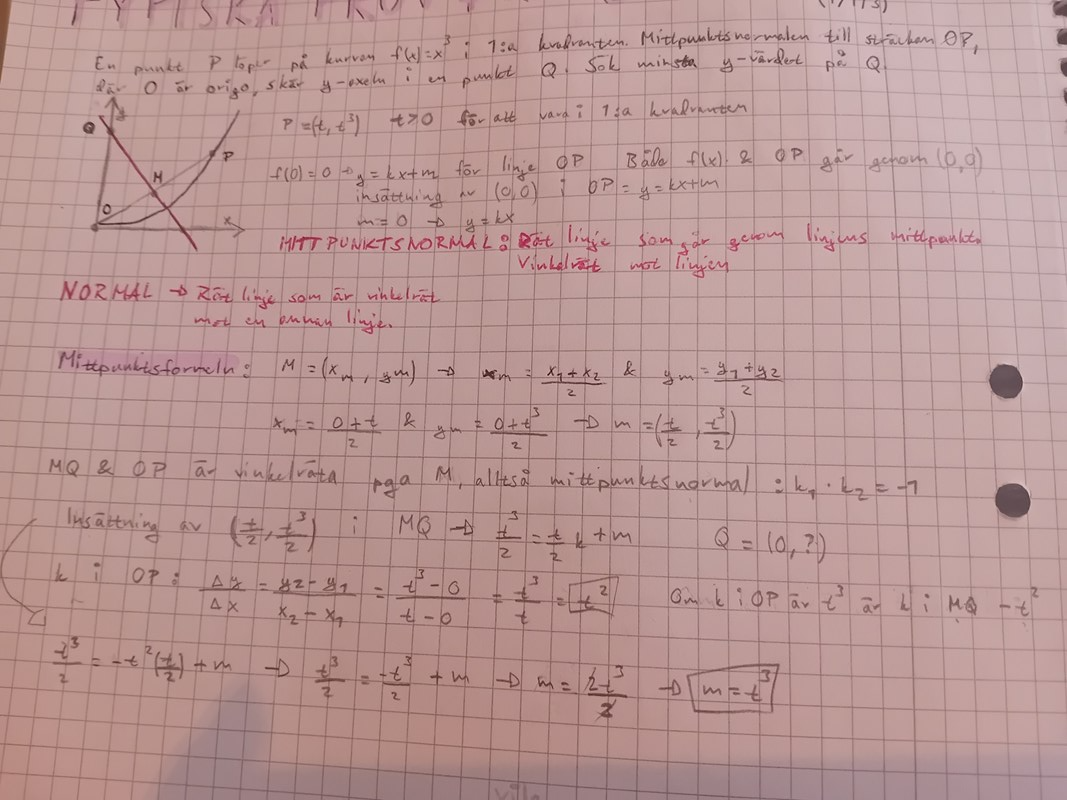 En punkt P löper på kurvan f(x)=x³ i 1:a kvadranten. Mittpunktsnormalen till sträckan OP,
där O är origo, skär y-axeln i en punkt Q. Sök minsta y-värdet på Q.
P=(t, t³) t>0 för att vara i 1:a kvadranten
y
Q
P
M
O
x
f(0)=0 → y=kx+m för linje OP Båda f(x) & OP går genom (0,0)
insättning av (0,0) i OP = y=kx+m
m=0 → y=kx
MITTPUNKTSNORMAL: Rät linje som går genom linjens mittpunkt.
Vinkelrät mot linjen
NORMAL → Rät linje som är vinkelrät
mot en annan linje.
Mittpunktsformeln: M=(xm, ym) → xm = (x₁+x₂)/2 & ym = (y₁+y₂)/2
xm = (0+t)/2 & ym = (0+t³)/2 → m=(t/2, t³/2)
MQ & OP är vinkelräta pga M, alltså mittpunktsnormal : k₁·k₂=-1
Insättning av (t/2, t³/2) i MQ → t³/2 = t/2 k+m Q=(0,?)
k i OP: Δy/Δx = (y₂-y₁)/(x₂-x₁) = (t³-0)/(t-0) = t³/t = t² Om k i OP är t³ är k i MQ -t²
t³/2 = -t²(t/2)+m → t³/2 = -t³/2 +m → m = 2t³/2 → m=t³